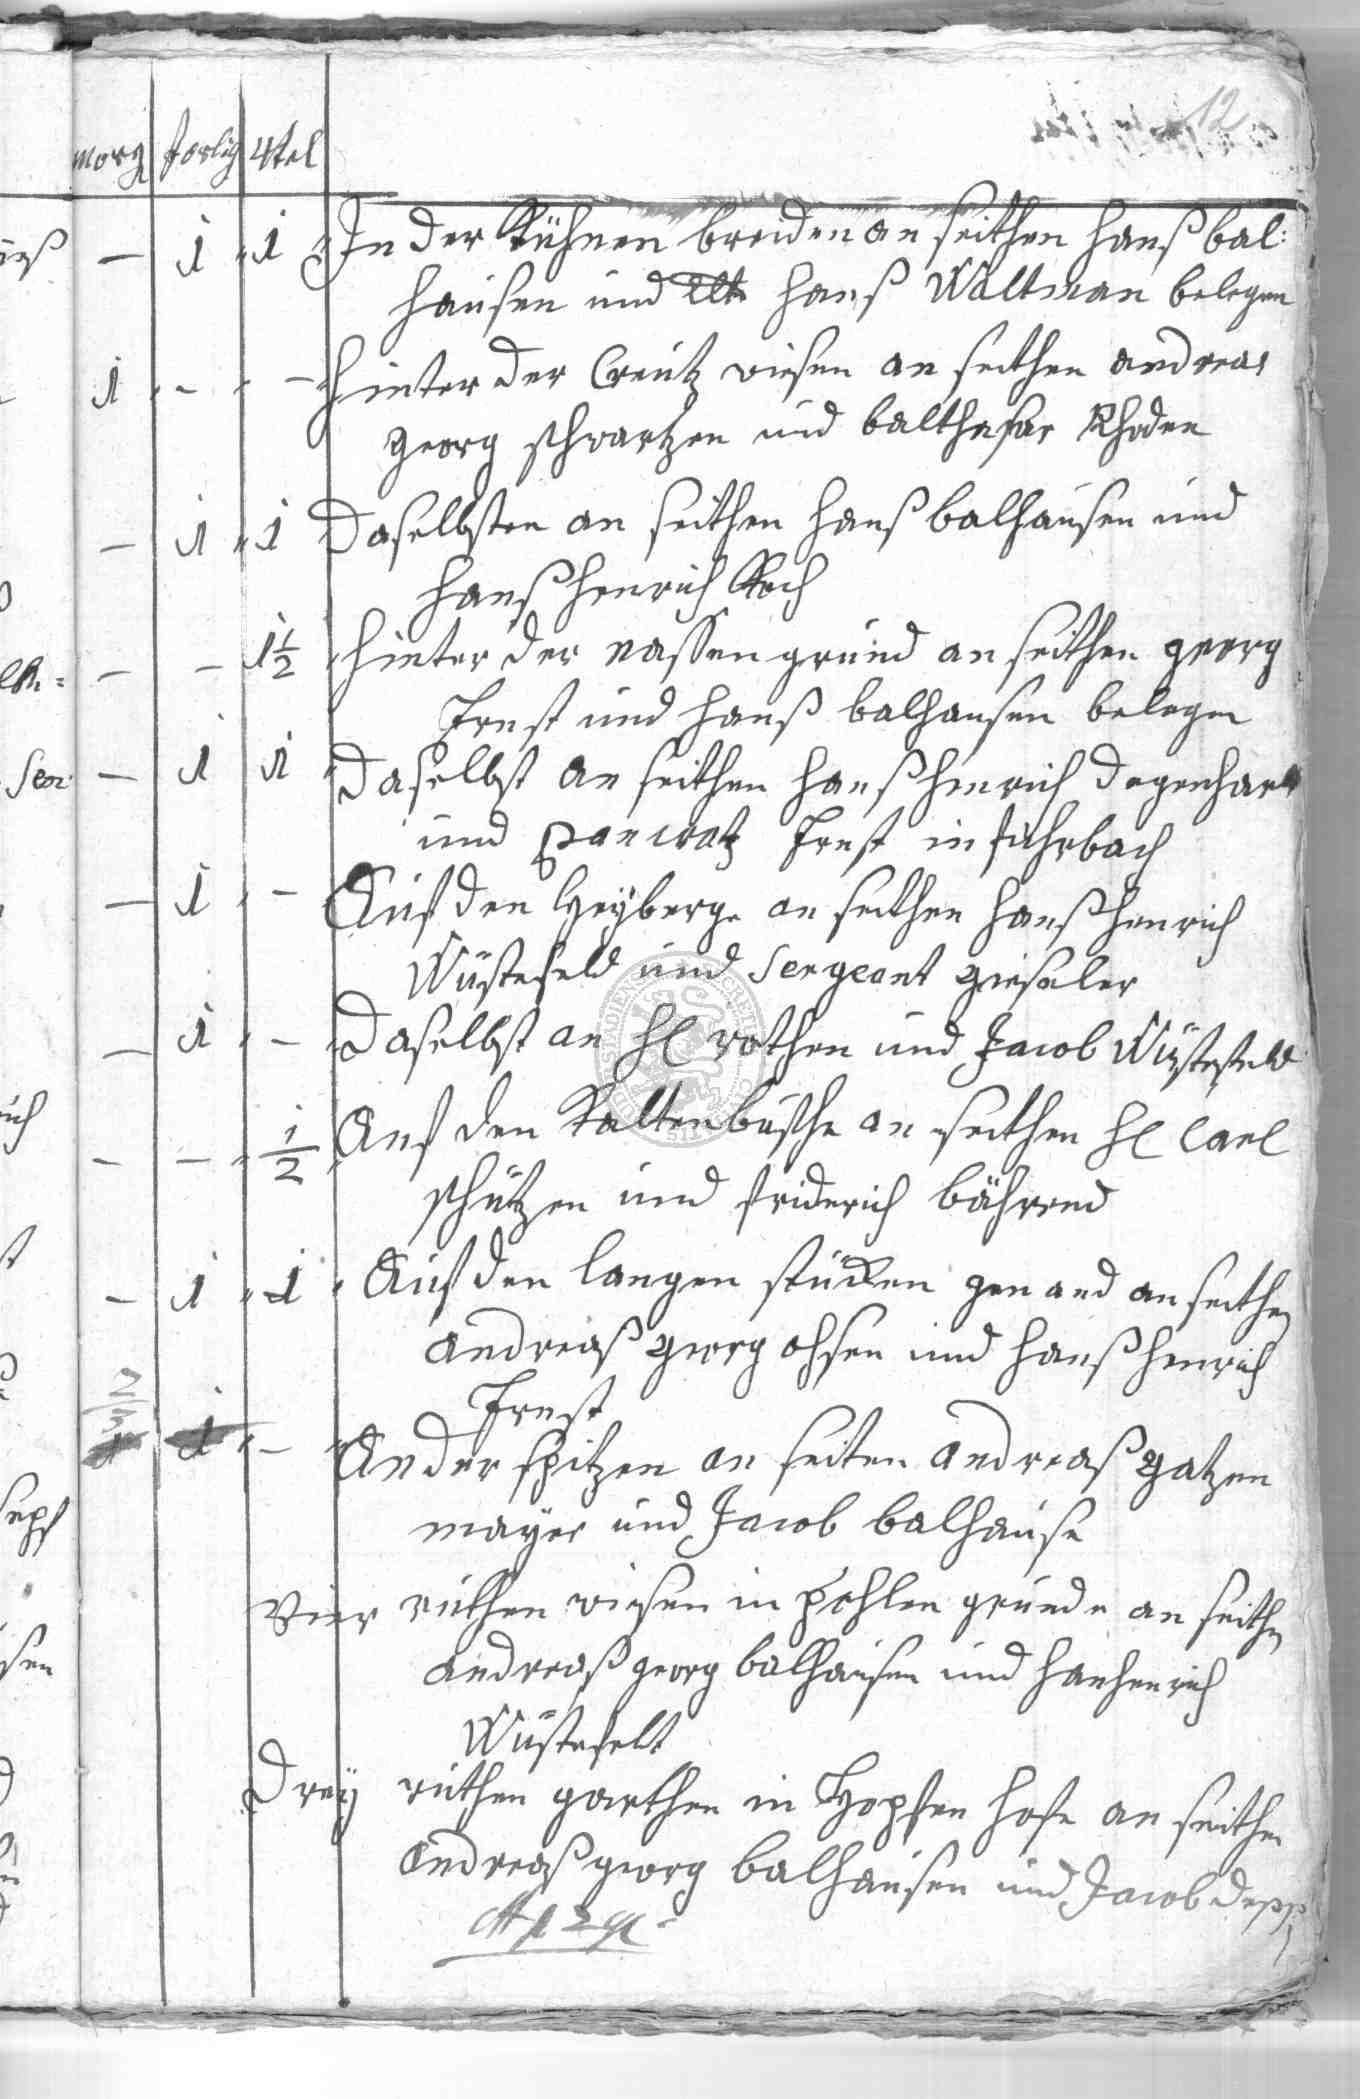 12
morg forlig 4tel
— 1 1 In der Kühnen breiden an seithen Hanß bal:
hausen und Hanß Waltman belegen
1 - - Hinter der Creutz wiesen an seithen andreas
georg schwartzen und balthasar Rhoden
— 1 1 Daselbsten an seithen Hanß balhausen und
Hanß Henrich Koch
— — 1½ Hinter der nassen grund an seithen georg
Ernst und Hanß balhausen belegen
— 1 1 Daselbst an seithen Hanß Henrich Degenhart
und Pancratz Ernst in fuhrbach
— 1 - Auf den Heyberge an seithen Hanß Henrich
Wüstefeld und Sergeant gieseler
— 1 - Daselbst an Hl rothen und Jacob Wüstefeld
- — ½ Auf den Kaltenbüsche an seithen Hl Carl
schützen und friderich bährend
— 1 1 Auf den langen stücken genand an seithen
andreaß georg ohsen und Hanß Henrich
Ernst
2/3
1 1 - An der spitzen an seiten andreaß gatzen
mayer und Jacob balhause
Vier ruthen wiesen in pohlen grunde an seithen
andreaß georg balhausen und Hanhenrich
Wüstefelt
Drey ruthen garthen in Hopfen hofe an seithen
andreaß georg balhausen und Jacob Depp